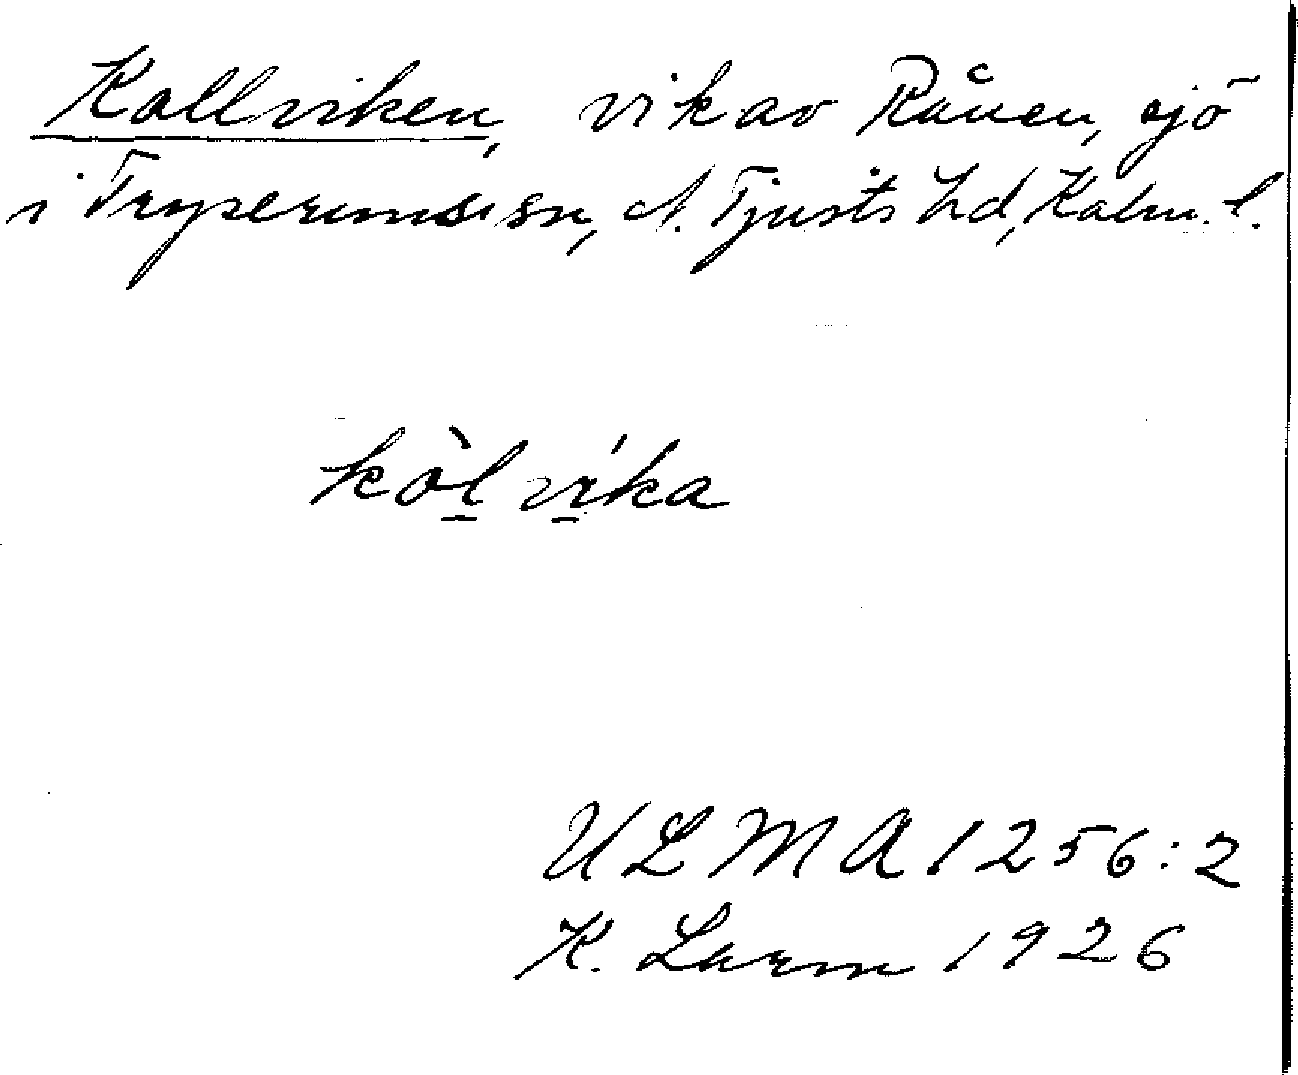 Kallviken, vik av Råven, sjö
i Tryserums sn, N. Tjusts hd, Kalm. l.
kòlvíka
ULMA 1256:2
K. Larm 1926